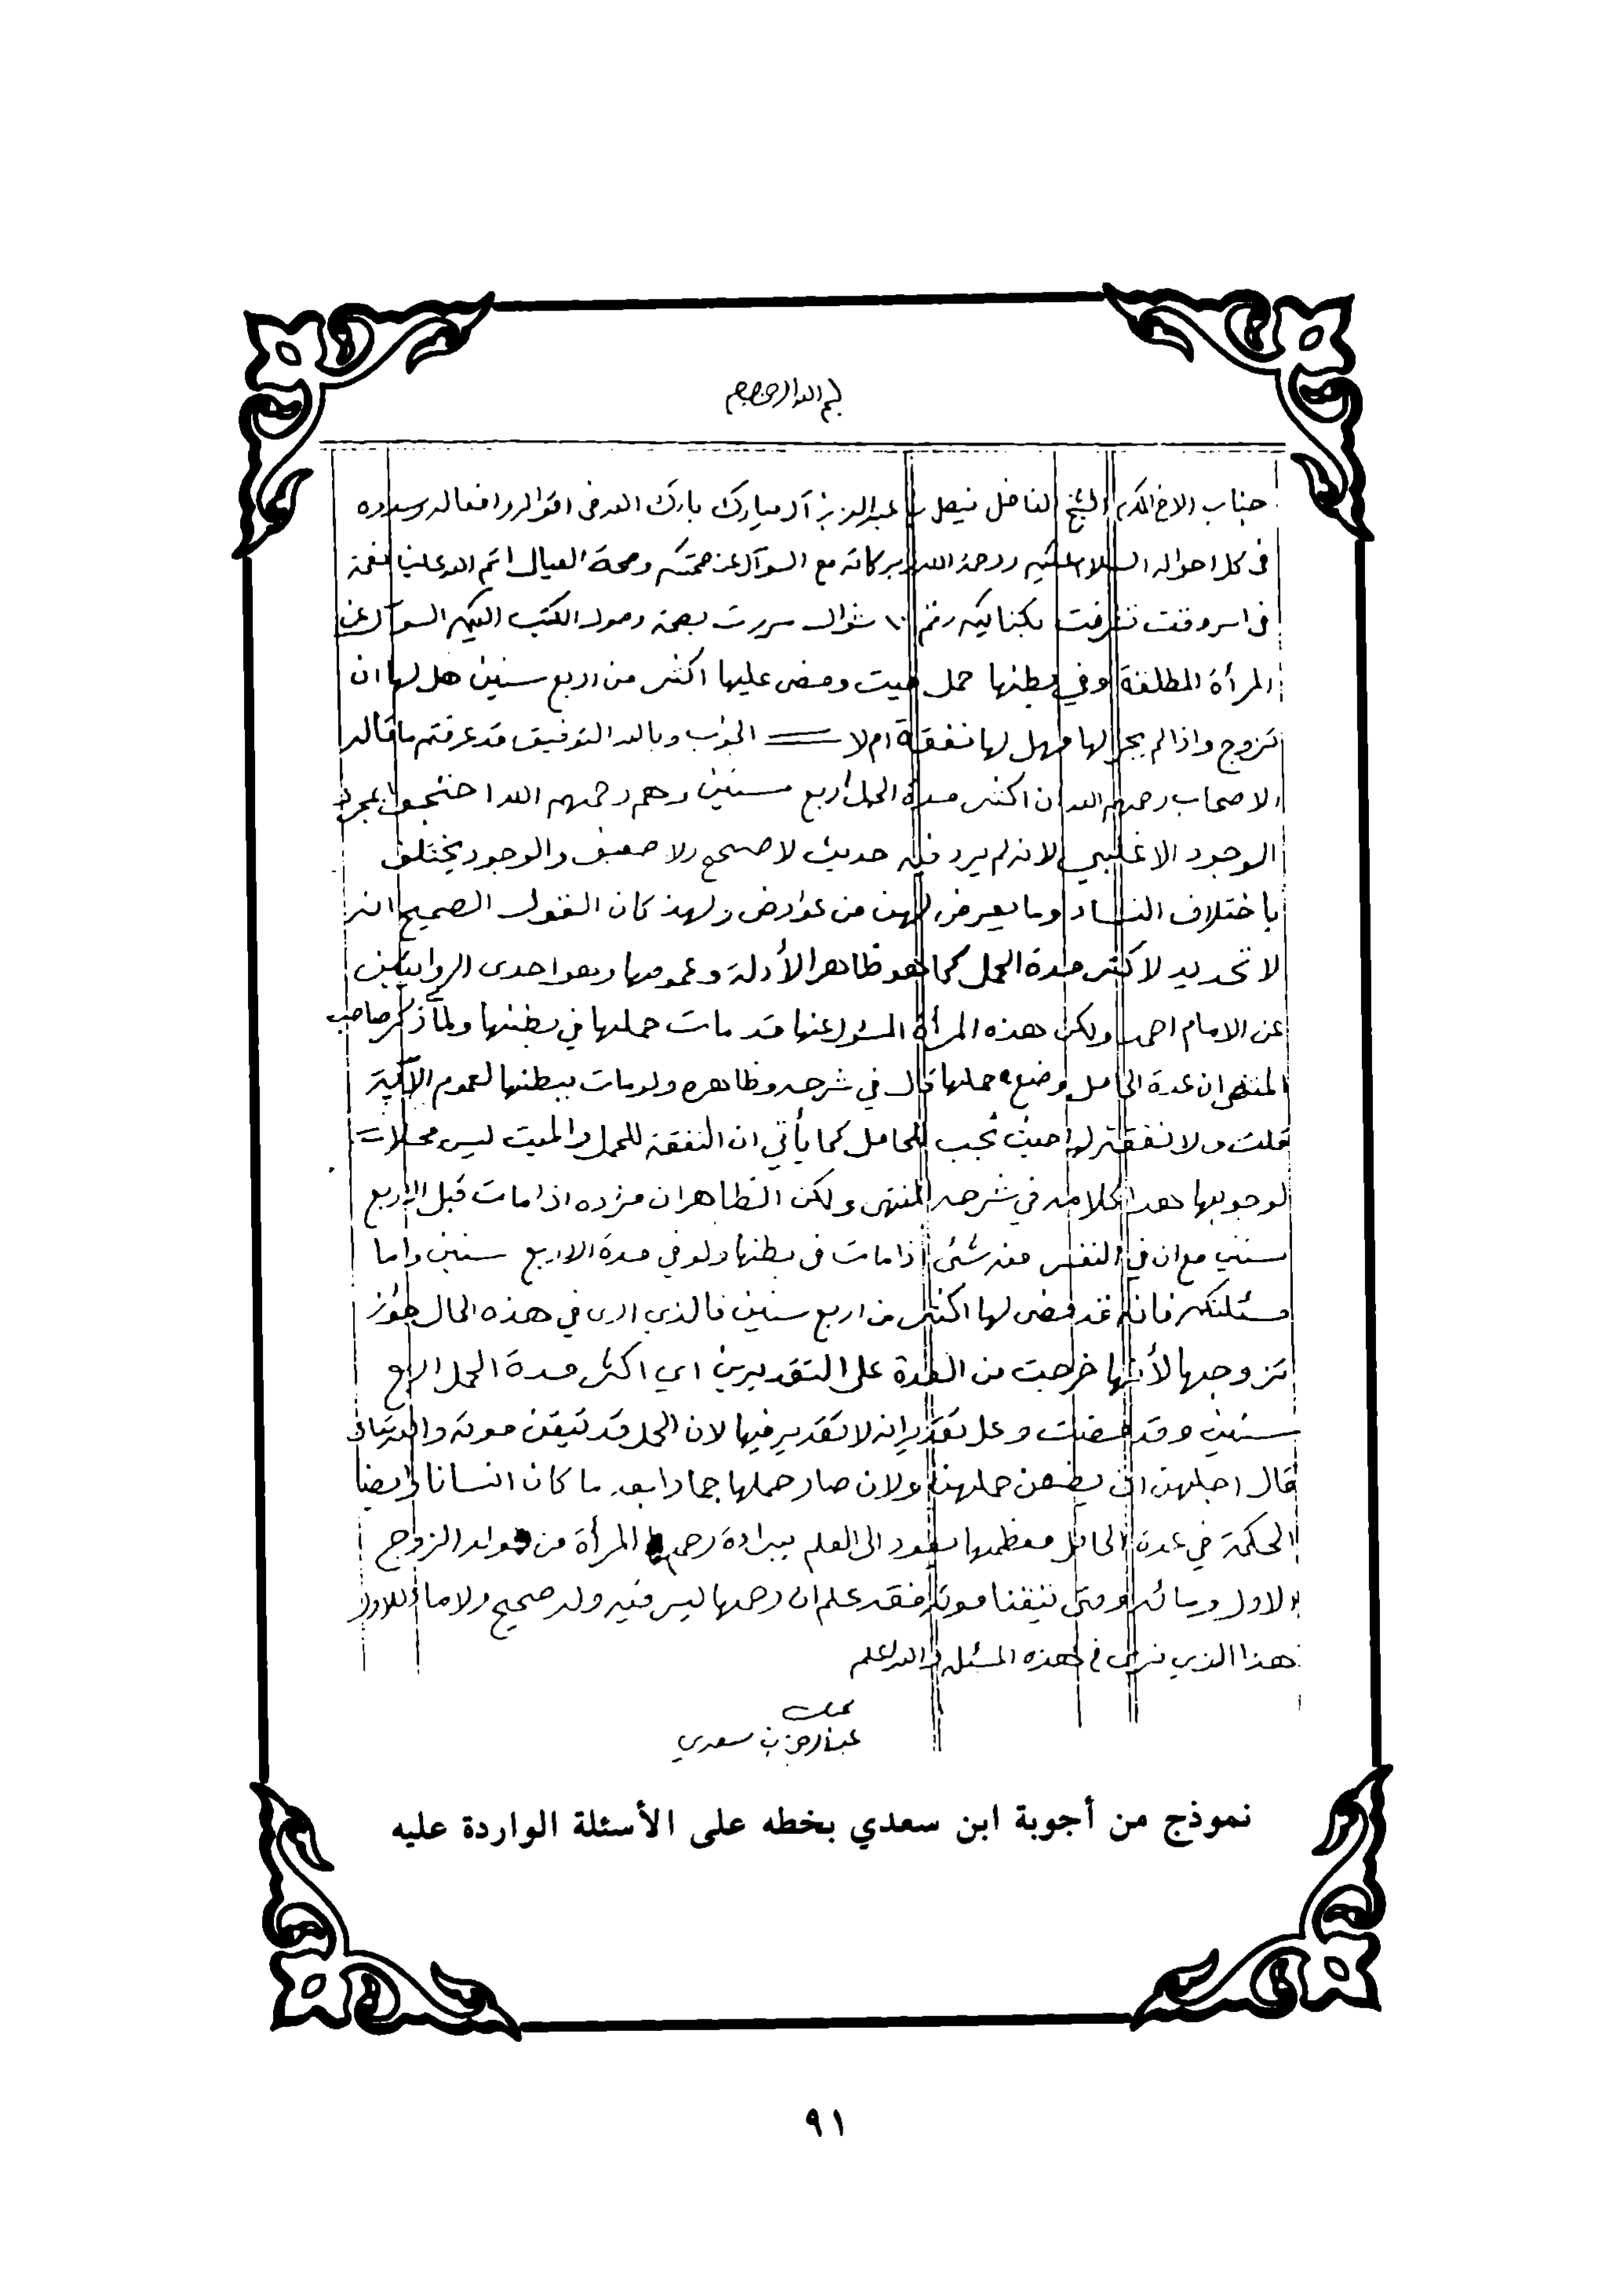 بسم الله الرحمن الرحيم
جناب الاخ المكرم الشيخ الفاضل فيصل بن عبد العزيز آل مبارك بارك الله في اقواله وافعاله وسدده
في كل احواله السلام عليكم ورحمة الله وبركاته مع السوآل عن صحتكم وصحة العيال اتم الله علينا نعمه
في اسر وقت تشرفت بكتابكم رقم ١٠ شوال سررت بصحة وصول الكتب اليكم السوآل عن
المرأة المطلقة وفي بطنها حمل ميت ومضى عليها اكثر من اربع سنين هل لها ان
تزوج واذا لم يجز لها فهل لها نفقة ام لا = الجواب وبالله التوفيق قد عرفتم ما قاله
الاصحاب رحمهم الله ان اكثر مدة الحمل اربع سنين وهم رحمهم الله احتجوا بمجرد
الوجود الاغلبي لانه لم يرد فيه حديث لا صحيح ولا ضعيف والوجود يختلف
باختلاف النساء وما يعرض لهن من عوارض ولهذ كان القول الصحيح انه
لا تحديد لاكثر مدة الحمل كما هو ظاهر الأدلة وعمومها وهو احدى الروايتين
عن الامام احمد ولكن هذه المرأة المسئول عنها قد مات حملها في بطنها ولما ذكر صاحب
المنتهى ان عدة الحامل وضع حملها قال في شرحه وظاهره ولو مات ببطنها لعموم الآية
قلت ولا نفقة لها حيث تجب للحامل كما يأتي ان النفقة للحمل والميت ليس محلا =
لوجوبها هذا كلامه في شرحه المنتهى ولكن الظاهر ان مراده اذا مات قبل الاربع
سنين مع ان في النفس منه شئ اذا مات في بطنها ولو في مدة الاربع سنين واما
مسئلتكم فانه قد مضى لها اكثر من اربع سنين فالذي ارى في هذه الحال جواز
تزوجها لأنها خرجت من العدة على التقديرين اي اكثر مدة الحمل اربع
سنين وقد مضت وعلى تقدير انه لا تقدير فيها لان الحمل قد تيقن موته والله تعالى
قال اجلهن ان يضعن حملهن ولان صار حملها جمادا بعد ما كان انسانا وايضا
الحكمة في عدة الحامل معظمها يعود الى العلم ببراءة رحم المرأة من ولد الزوج
الاول ومائه ومتى تيقنا موته فقد علم ان رحمها ليس فيه ولد صحيح ولا ماء للاول
هذا الذي نرى في هذه المسئلة والله اعلم
محبك
عبد الرحمن بن سعدي
نموذج من أجوبة ابن سعدي بخطه على الأسئلة الواردة عليه
٩١